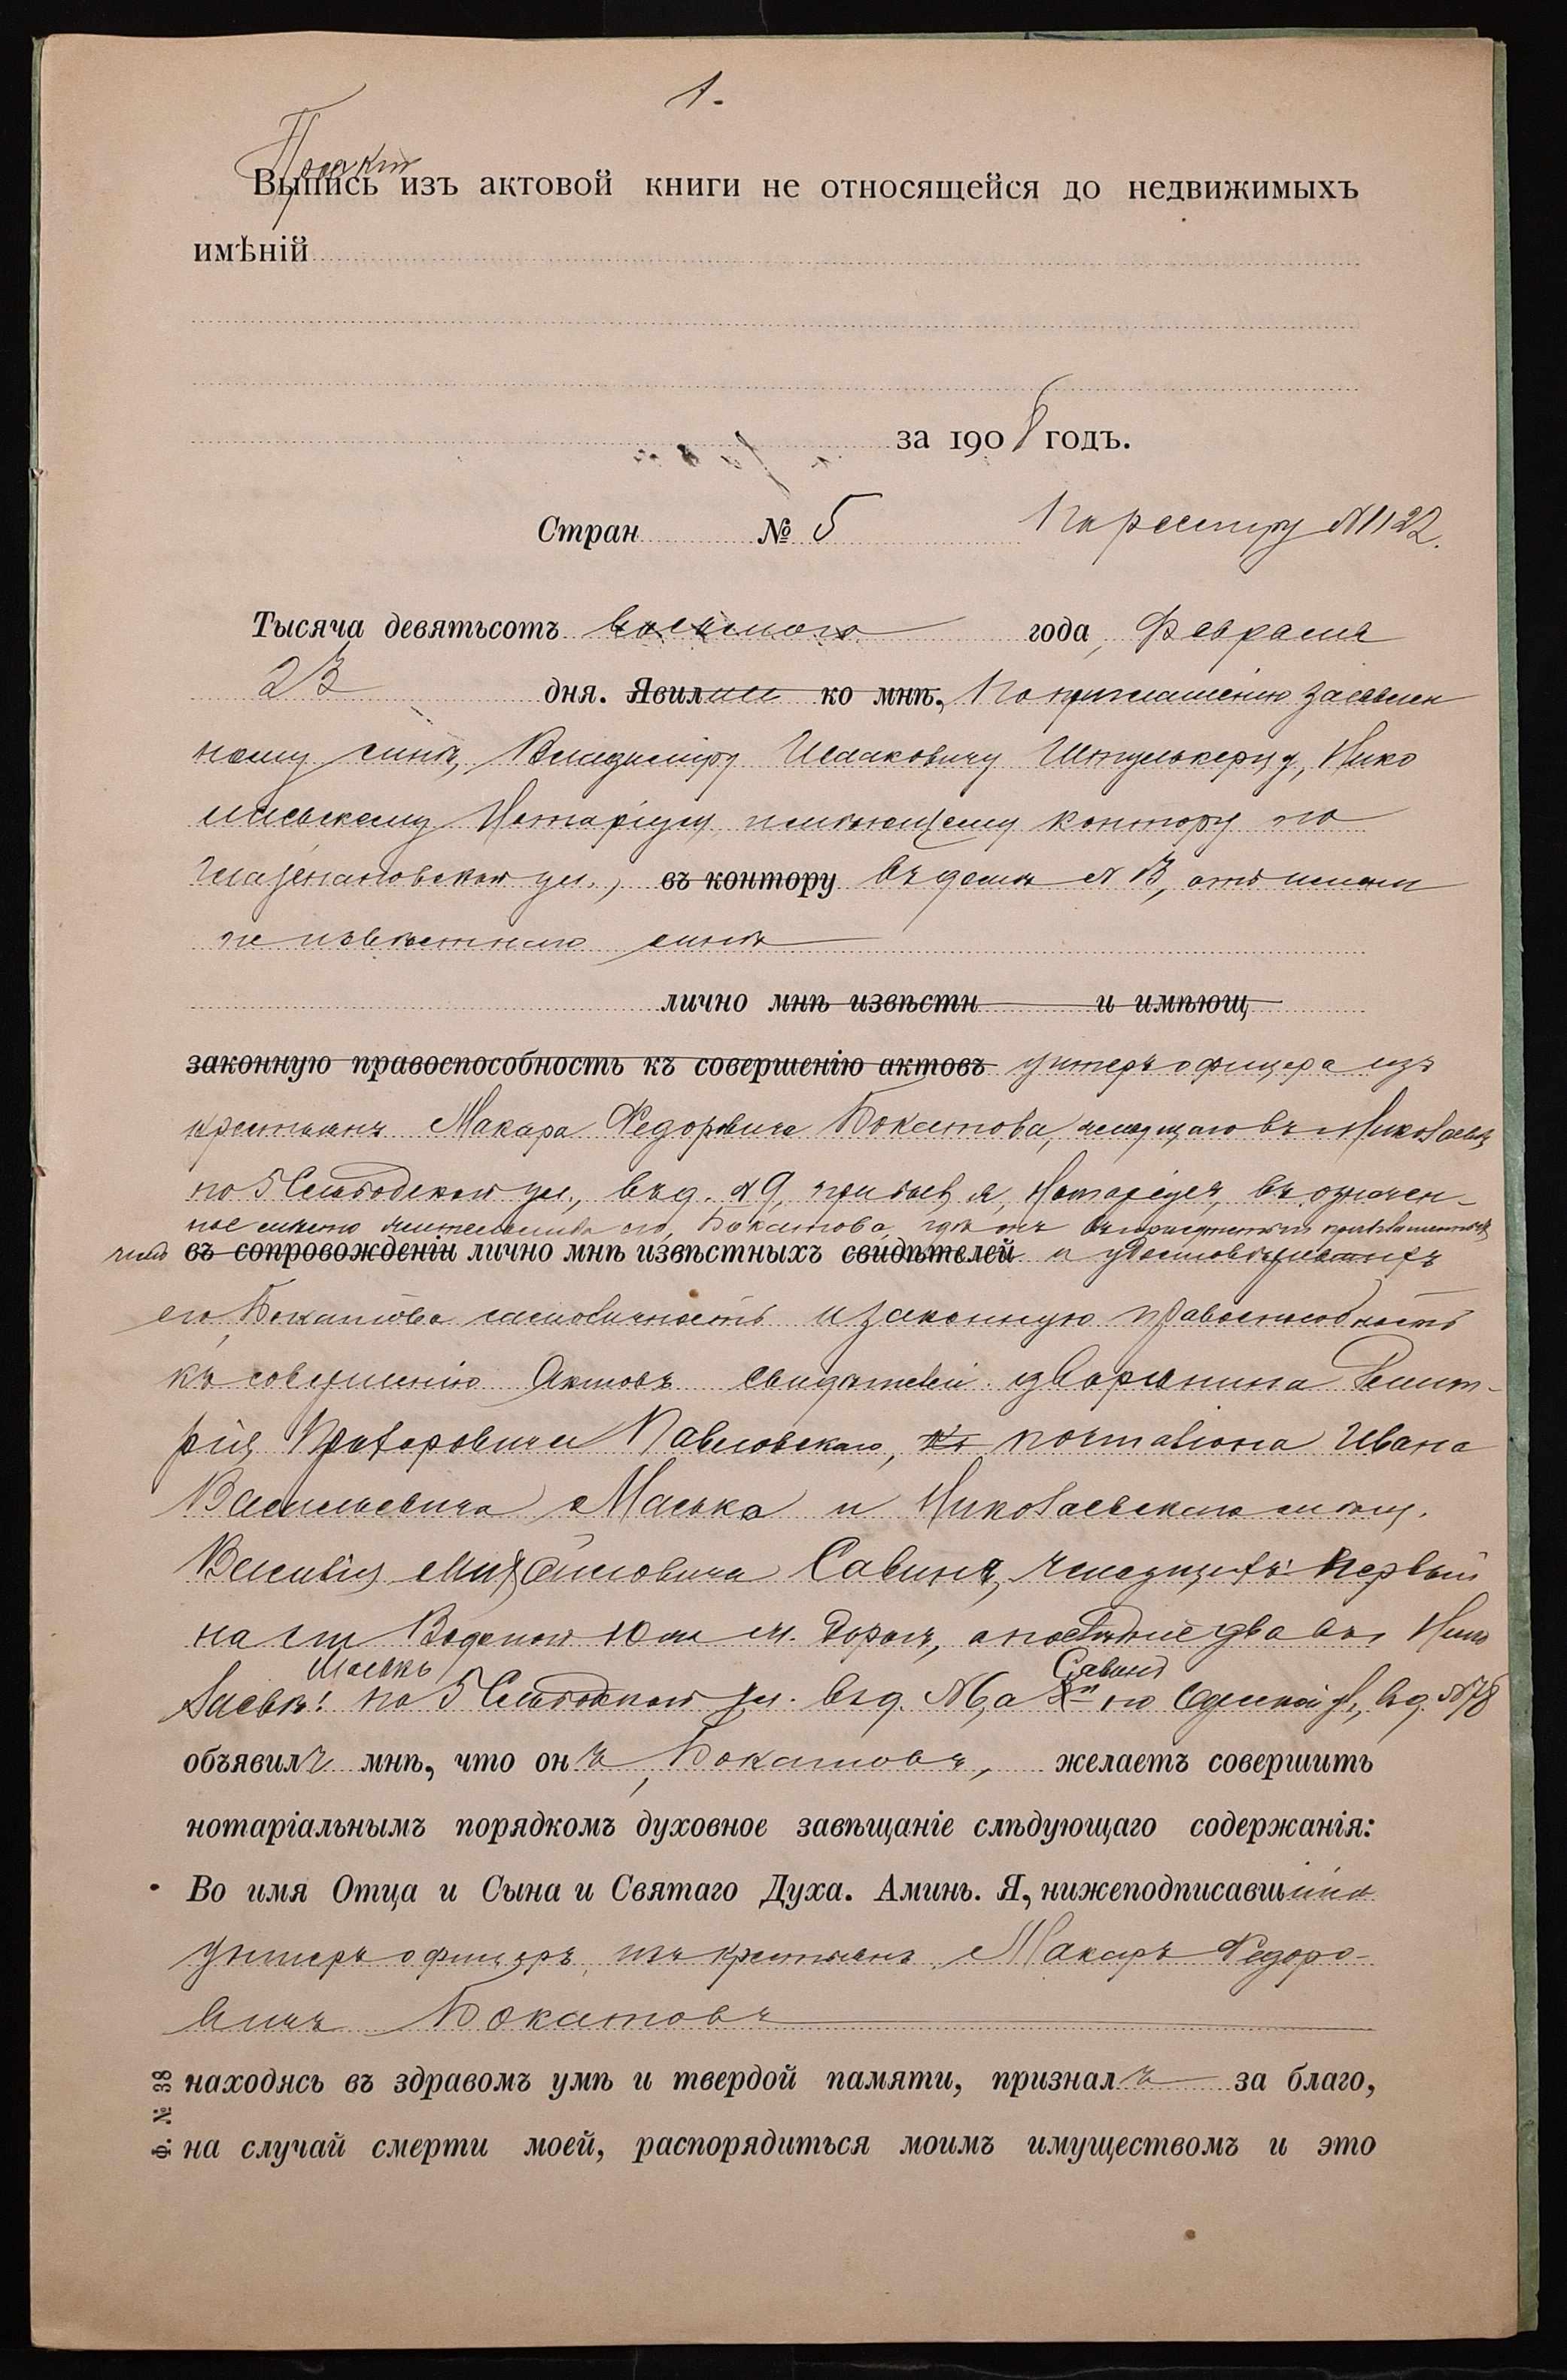 1.
Проектъ
Выпись изъ актовой книги не относящейся до недвижимыхъ
имѣній
за 1908 годъ.
Стран № 5 По реестру № 1122.
Тысяча девятьсотъ восьмого года, Февраля
23 дня. Явились ко мнѣ, По приглашенію заявлен
ному мнѣ, Владиміру Исааковичу Штулькерцу, Нико
лаевскому Нотаріусу, имѣющему контору по
Глазенаповской ул., въ контору въ домѣ № 13, отъ имени
не извѣстнаго мнѣ
лично мнѣ извѣстн и имѣющ
законную правоспособность къ совершенію актовъ унтеръ офицера изъ
крестьянъ Макара Федоровича Бокатова, живущаго въ г. Николаевѣ
по 5 Слободской ул., въ д. № 9, прибылъ я, Нотаріусъ, въ означен-
ное мѣсто жительства его, Бокатова, гдѣ онъ въ присутствіи
въ сопровожденіи лично мнѣ извѣстныхъ свидѣтелей и удостовѣрившихъ
его, Бокатова самоличность и законную правоспособность
къ совершенію актовъ свидѣтелей: дворянина Дмит-
рія Павловскаго, почталіона Ивана
Васильевича Масько и Николаевскаго мѣщ.
Василія Михайловича Савина, живущихъ: первый
на ст. Водопой Юж. ж. дороги, а послѣдніе два въ Нико
Масько Савинъ
лаевѣ: по 5 Слободской ул. въ д. № 6, а по Одесской ул., въ д. № 78
объявилъ мнѣ, что онъ, Бокатовъ, желаетъ совершить
нотаріальнымъ порядкомъ духовное завѣщаніе слѣдующаго содержанія:
Во имя Отца и Сына и Святаго Духа. Аминь. Я, нижеподписавшійся
унтеръ офицеръ изъ крестьянъ Макаръ Федоро-
вичъ Бокатовъ
находясь въ здравомъ умѣ и твердой памяти, призналъ за благо,
на случай смерти моей, распорядиться моимъ имуществомъ и это
Ф. № 38